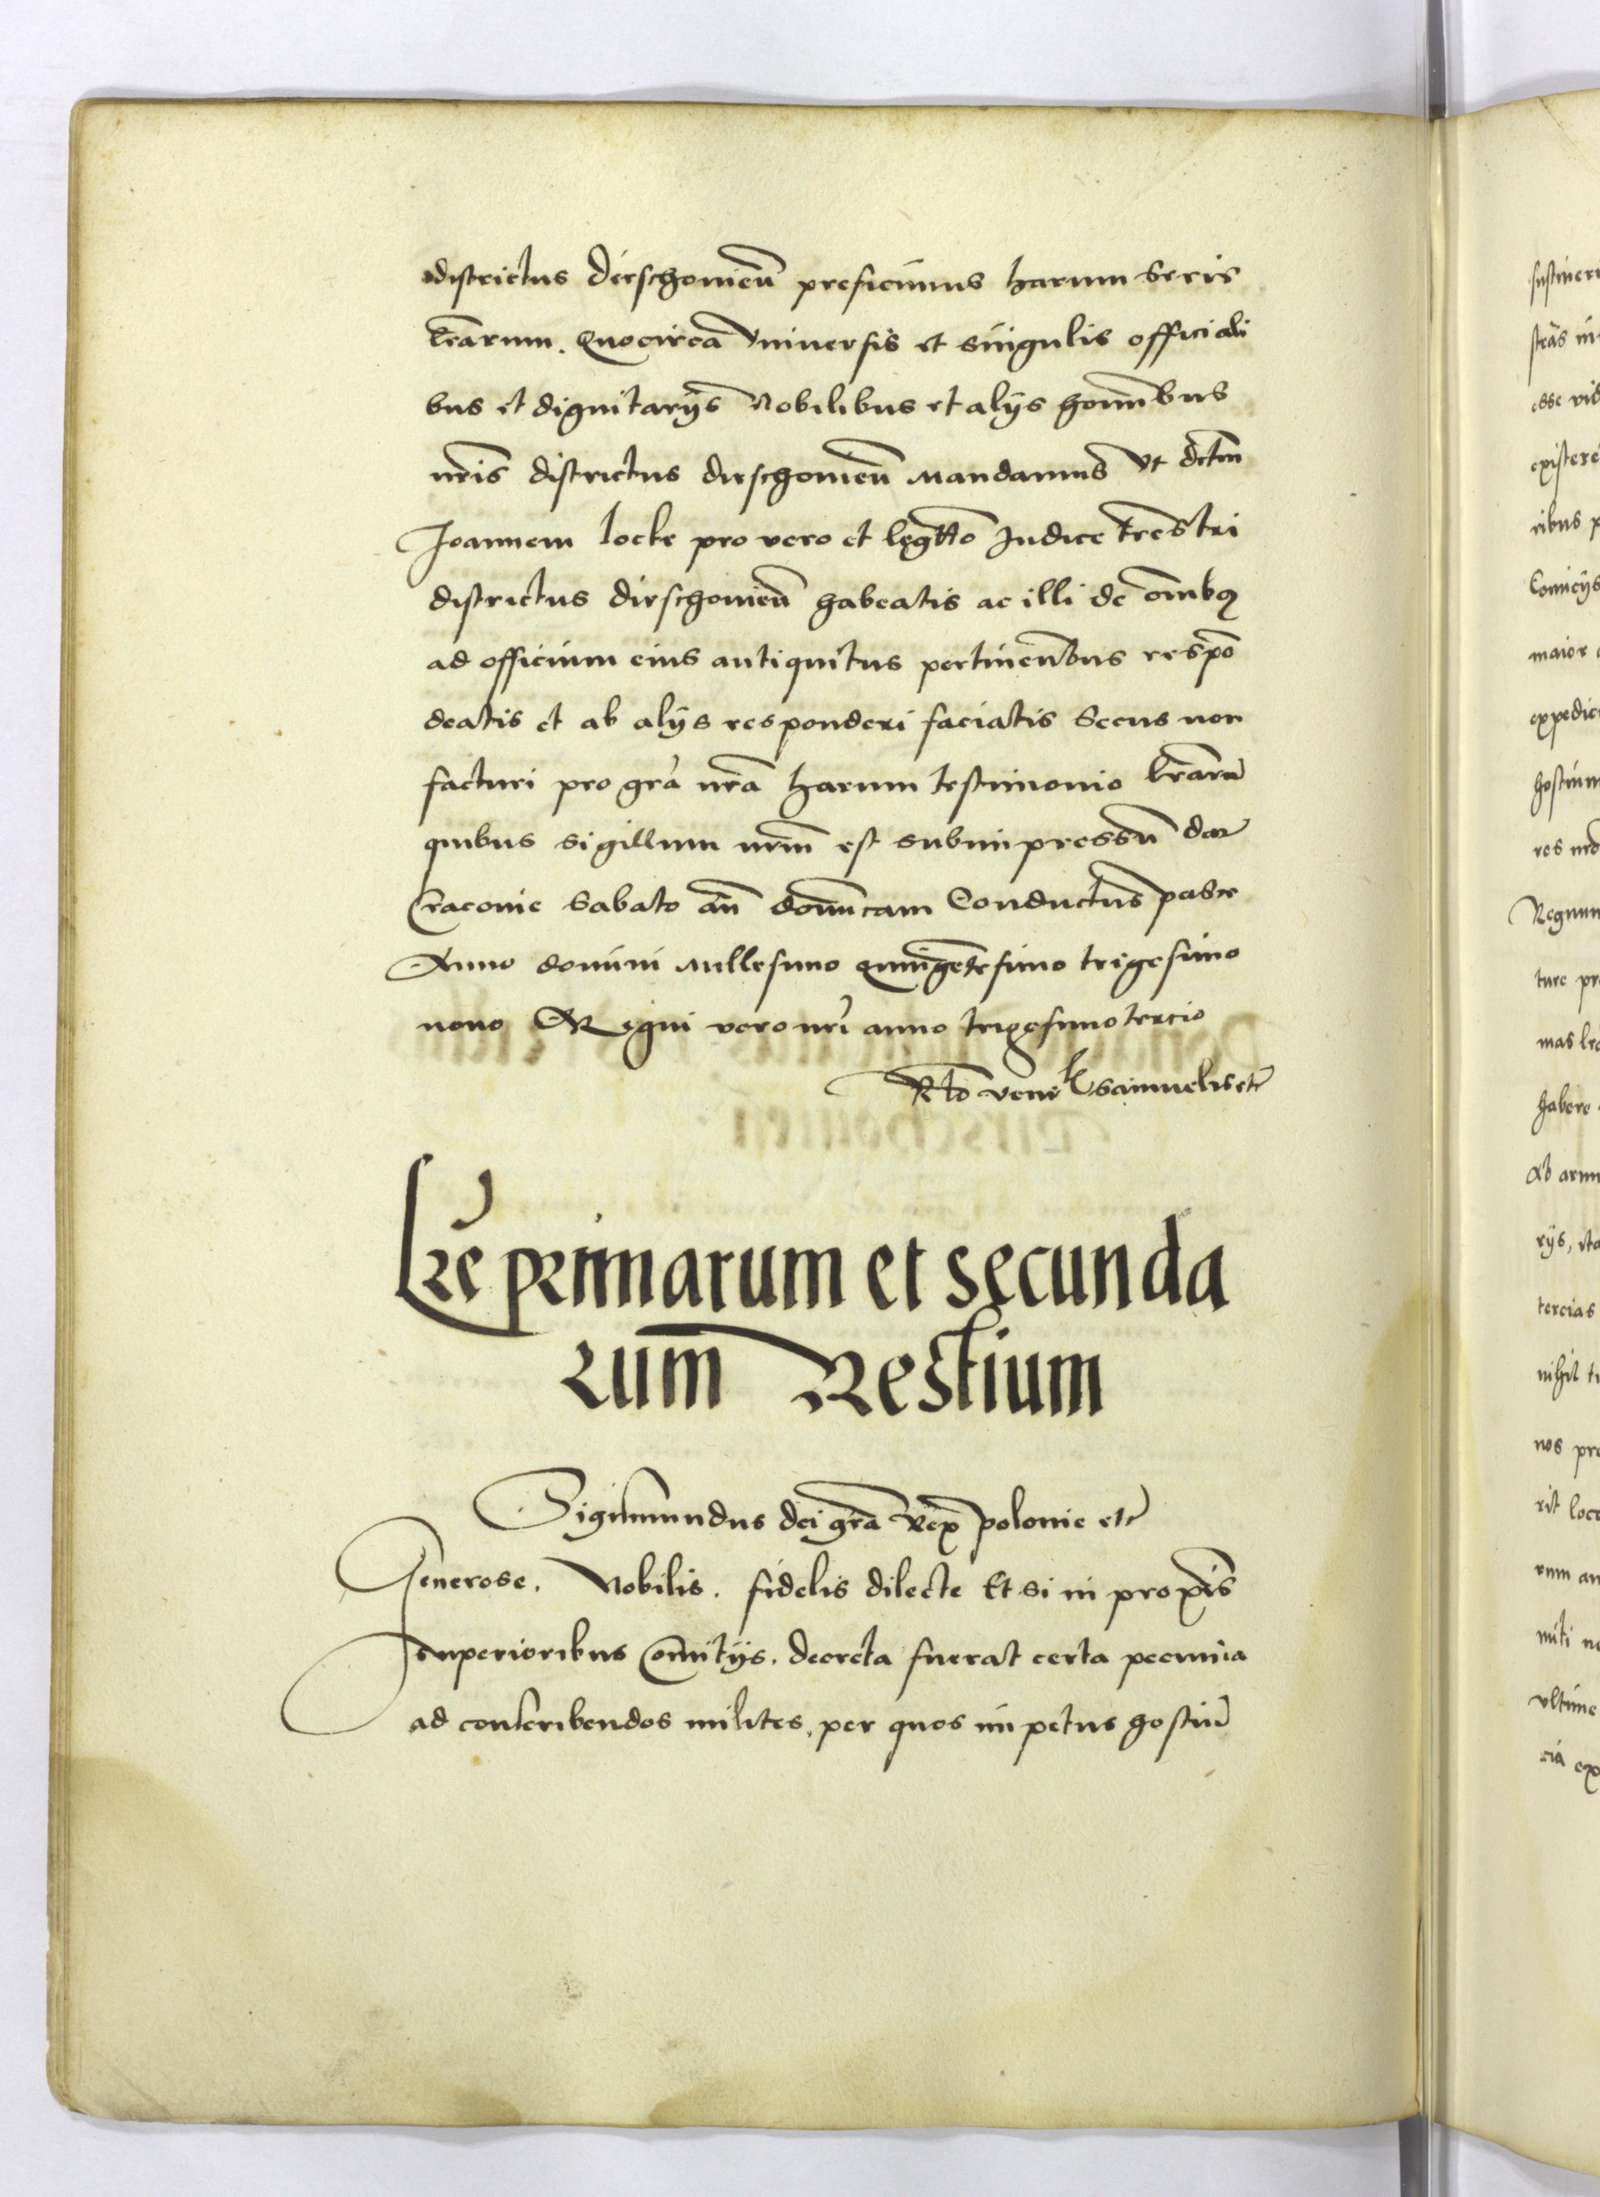 districtus dirschovieñ preficimus harum seris
lrãrum. Quocirca Vniversis et singulis officiali
bus et dignitarijs Nobilibus et alijs hominibus
nris districtus dirschovieñ Mandamus vt dctm
Joannem locke pro vero et legtto Judice trestri
districtus dirschovieñ habeatis ac illi de omibq
ad officium eius antiquitus pertinentibus respõ
deatis et ab alijs responderi faciatis Secus non
facturi pro gra nra harum testimonio lrarũ
quibus sigillum nrm est subimpressũ dat
Cracovie Sabato añ dominicam Conductus pasce
Anno domini Millesimo quingẽtesimo trigesimo
nono Regni vero nri anno trigesimo tercio
Rlo vene Samuelis etc
Lrẽ primarum et secunda
rum Restium
Sigismundus dei gra Rex polonie etc
Generose. Nobilis. fidelis dilecte Et si in proxis
superioribus Comitijs. decreta fuerat certa pecunia
ad conscribendos milites, per quos impetus hostiũ
sustineri
esse vid
existere
ribus p
Comicijs
maior
expedici
hostium
Regnum
ture pr
habere
rijs, ita
tercias
nihil t
nos pre
rit loc
rum an
miti n
vltime